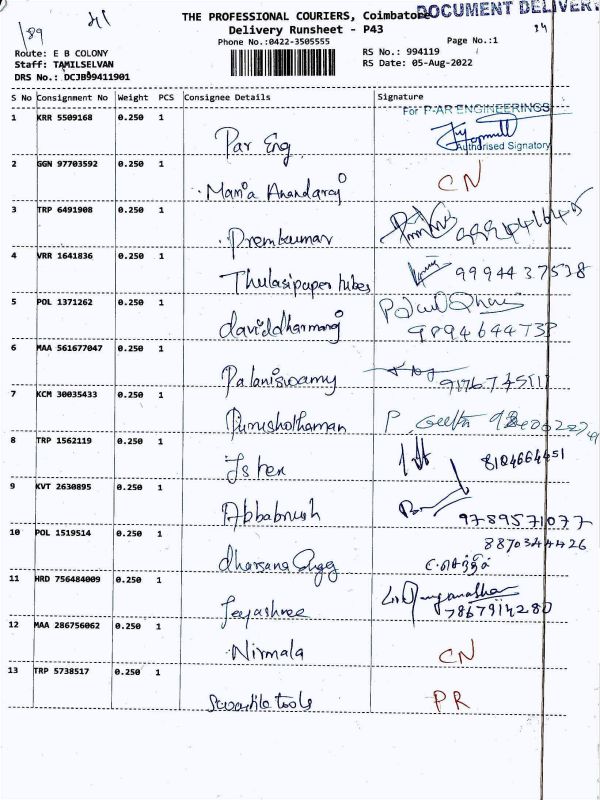 THE PROFESSIONAL COURIERS, Coimbatore
DOCUMENT DELIVERY
Delivery Runsheet - P43
Phone No.:0422-3505555
Page No.:1
Route: E B COLONY
RS No.: 994119
Staff: TAMILSELVAN
RS Date: 05-Aug-2022
DRS No.: DCJB99411901
S No Consignment No Weight PCS Consignee Details Signature
1 KRR 5509168 0.250 1 Par Eng
For P-AR ENGINEERINGS
Authorised Signatory
2 GGN 97703592 0.250 1 CN
3 TRP 6491908 0.250 1 Premkumar
4 VRR 1641836 0.250 1 Thulasipaper tubes 9994437538
5 POL 1371262 0.250 1 daviddharmaraj
6 MAA 561677047 0.250 1 Palaniswamy
7 KCM 30035433 0.250 1 Purushothaman P. Geetha
8 TRP 1562119 0.250 1 8184664451
9 KVT 2630895 0.250 1 9789571077
10 POL 1519514 0.250 1 8870344426
11 HRD 756484009 0.250 1 Jeyashree
12 MAA 286756062 0.250 1 Nirmala CN
13 TRP 5738517 0.250 1 tools PR